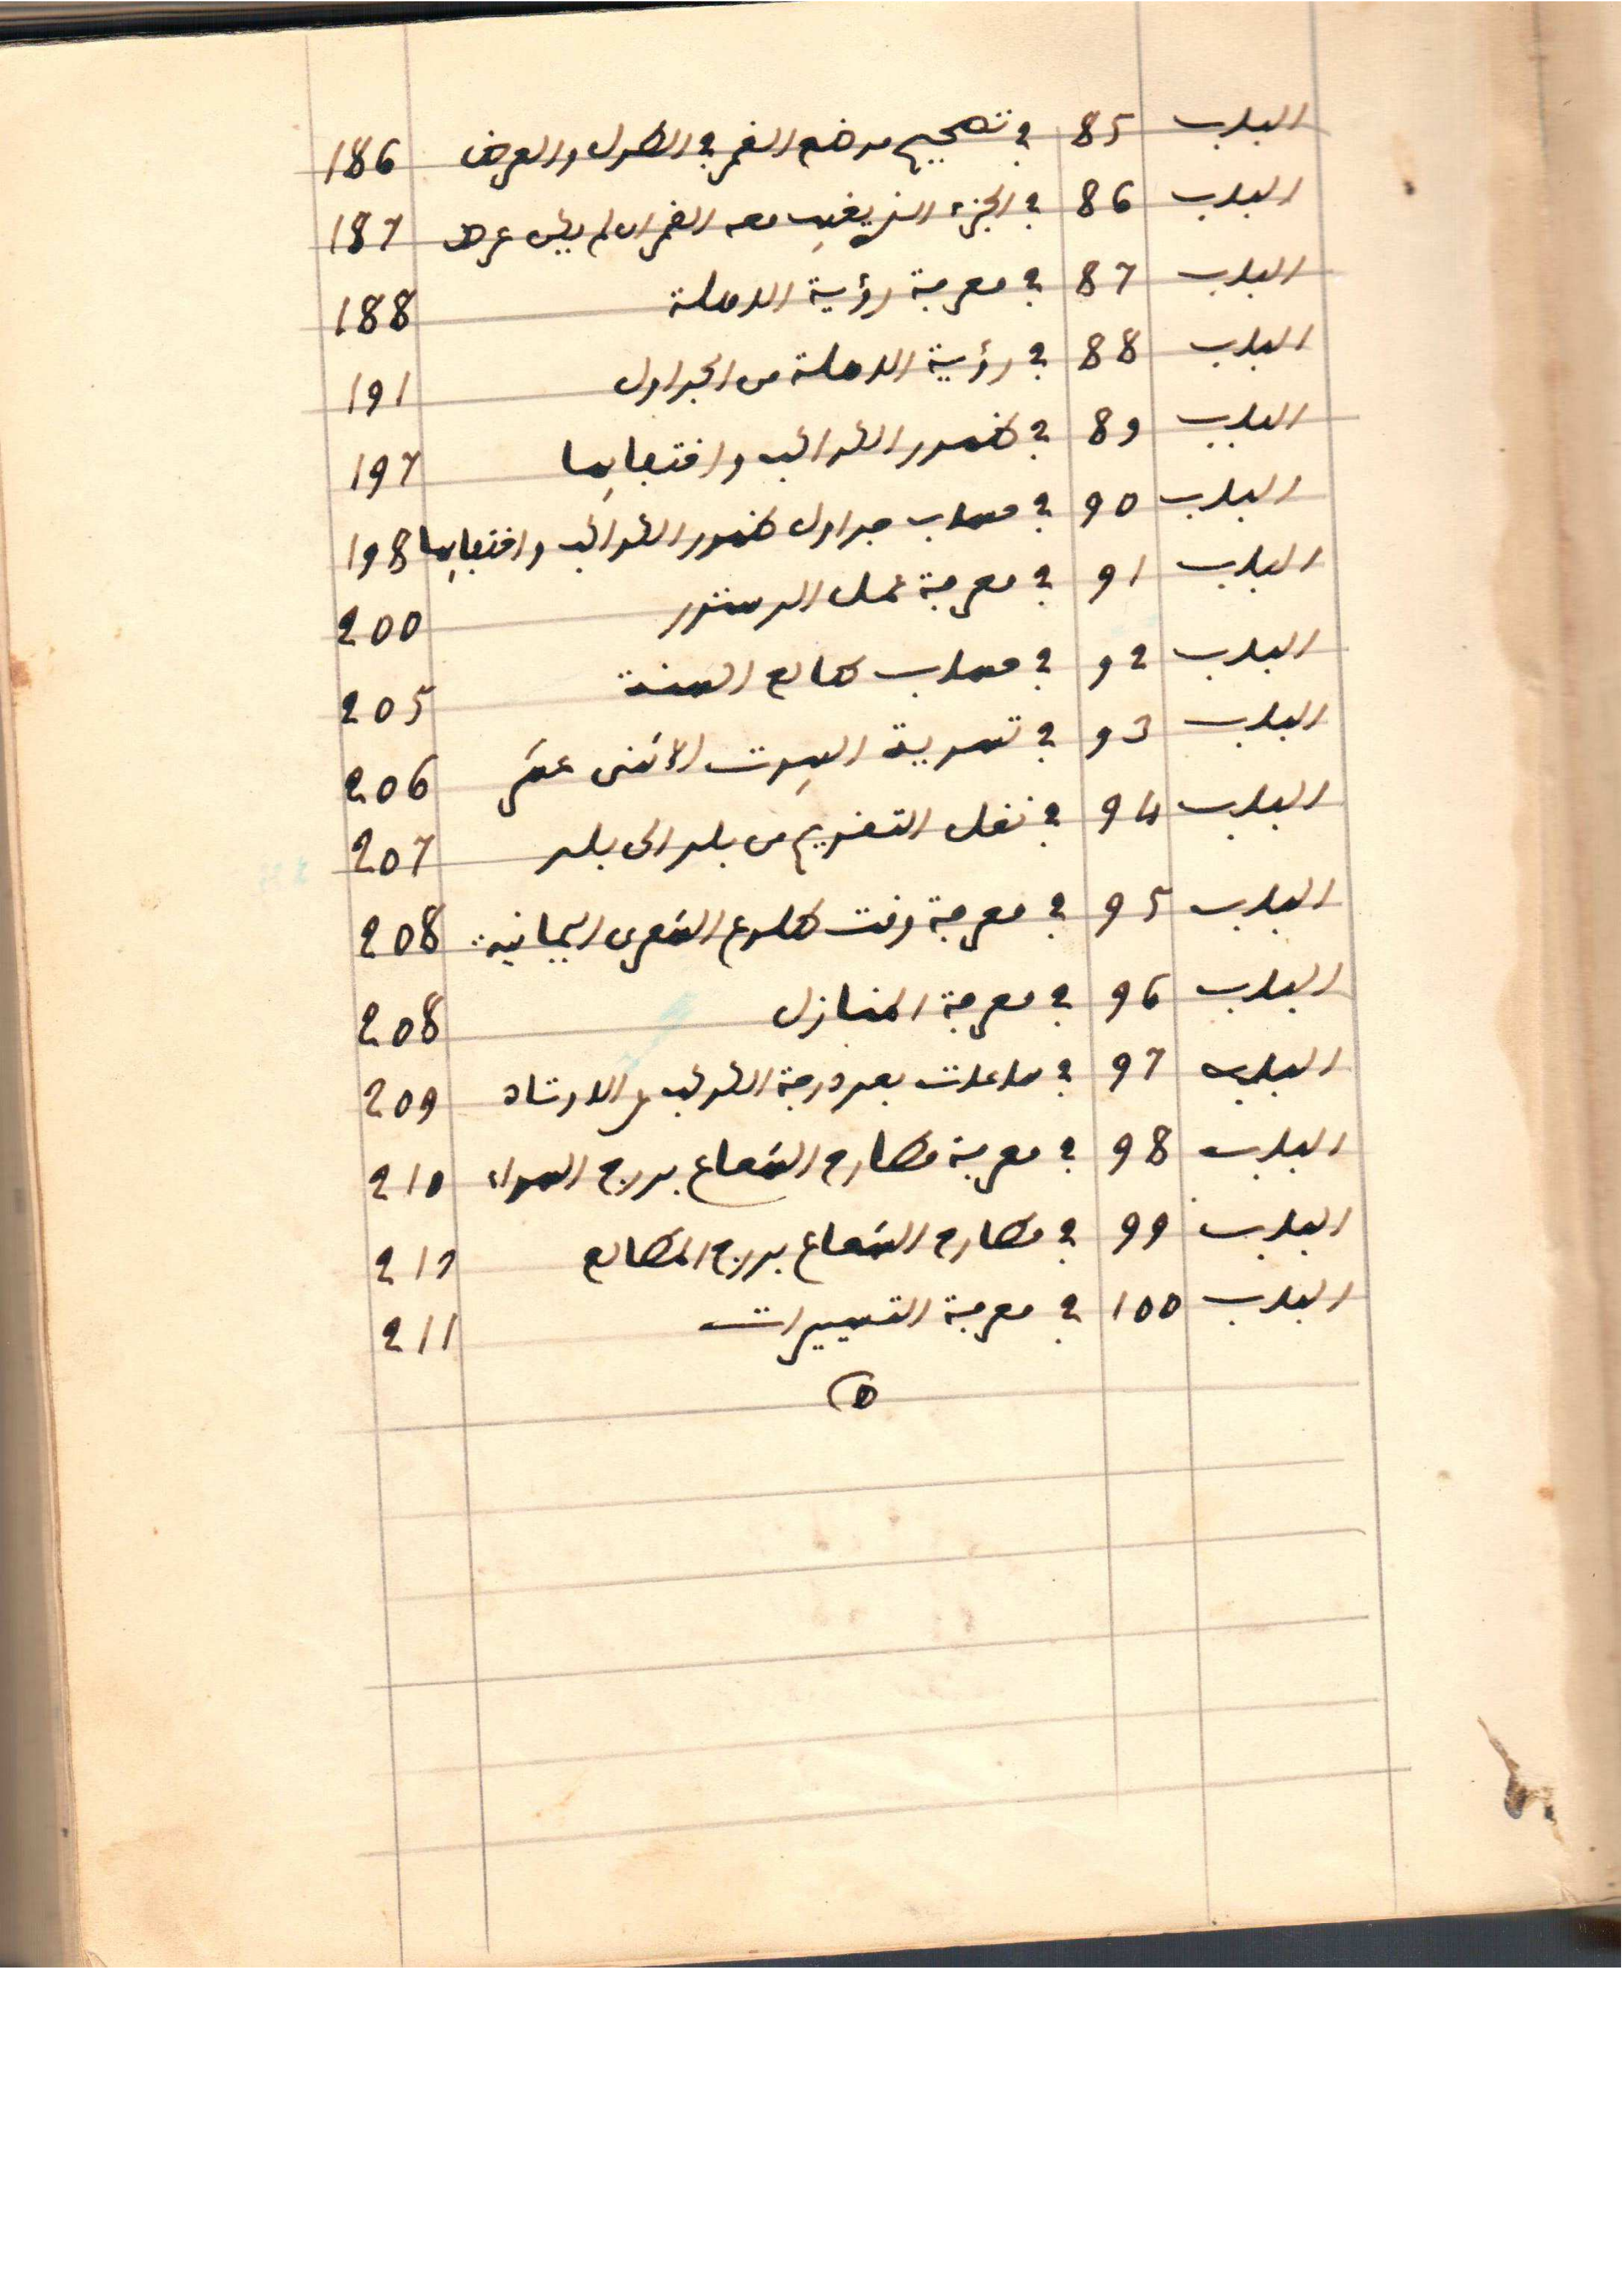 الباب 85 في تصحيح موضع القمر في الطول والعرض 186
الباب 86 في الجزء الذي يغيب معه القمر ان لم يكن عرض 187
الباب 87 في معرفة رؤية الاهلة 188
الباب 88 في رؤية الاهلة من الجداول 191
الباب 89 في ظهور الكواكب واختفايها 197
الباب 90 في حساب جداول ظهور الكواكب واختفايها 198
الباب 91 في معرفة عمل الدستور 200
الباب 92 في حساب طالع السنة 205
الباب 93 في تسوية البيوت الاثنى عشر 206
الباب 94 في نقل التقويم من بلد الى بلد 207
الباب 95 في معرفة وقت طلوع الشعرى اليمانية 208
الباب 96 في معرفة المنازل 208
الباب 97 في ساعات بعد درجة الكوكب الاوتاد 209
الباب 98 في معرفة مطارح الشعاع بدرج السواء 210
الباب 99 في مطارح الشعاع بدرج المطالع
الباب 100 في معرفة التسييرات 211